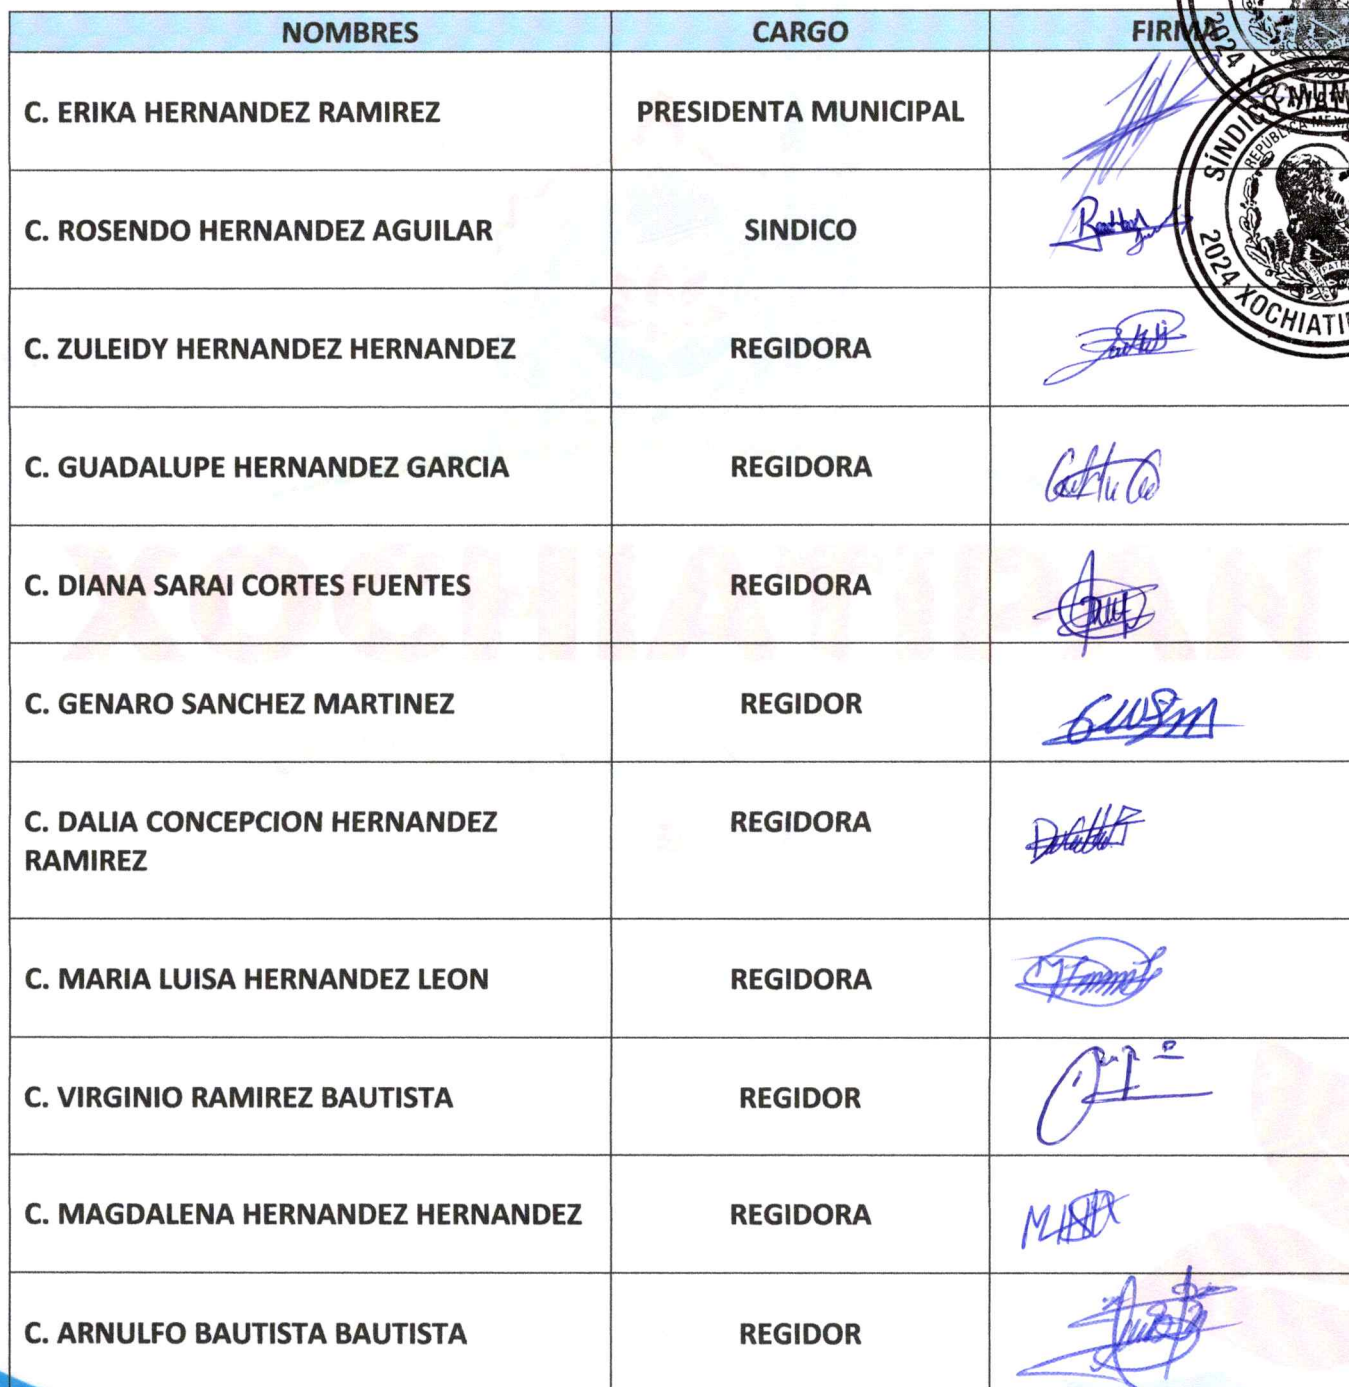 NOMBRES CARGO FIRMA
C. ERIKA HERNANDEZ RAMIREZ PRESIDENTA MUNICIPAL
C. ROSENDO HERNANDEZ AGUILAR SINDICO
C. ZULEIDY HERNANDEZ HERNANDEZ REGIDORA
C. GUADALUPE HERNANDEZ GARCIA REGIDORA
C. DIANA SARAI CORTES FUENTES REGIDORA
C. GENARO SANCHEZ MARTINEZ REGIDOR
C. DALIA CONCEPCION HERNANDEZ REGIDORA
RAMIREZ
C. MARIA LUISA HERNANDEZ LEON REGIDORA
C. VIRGINIO RAMIREZ BAUTISTA REGIDOR
C. MAGDALENA HERNANDEZ HERNANDEZ REGIDORA
C. ARNULFO BAUTISTA BAUTISTA REGIDOR
2024 XOCHIATIP
SÍNDICO MUN
REPÚBLICA MEXI
2024
XOCHIATI
XOCHIATIPAN